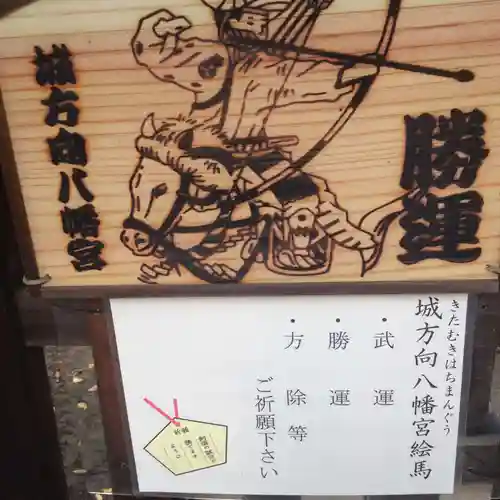 勝運
城方向八幡宮
きたむきはちまんぐう
城方向八幡宮絵馬
・武運
・勝運
・方除等
ご祈願下さい
祈願